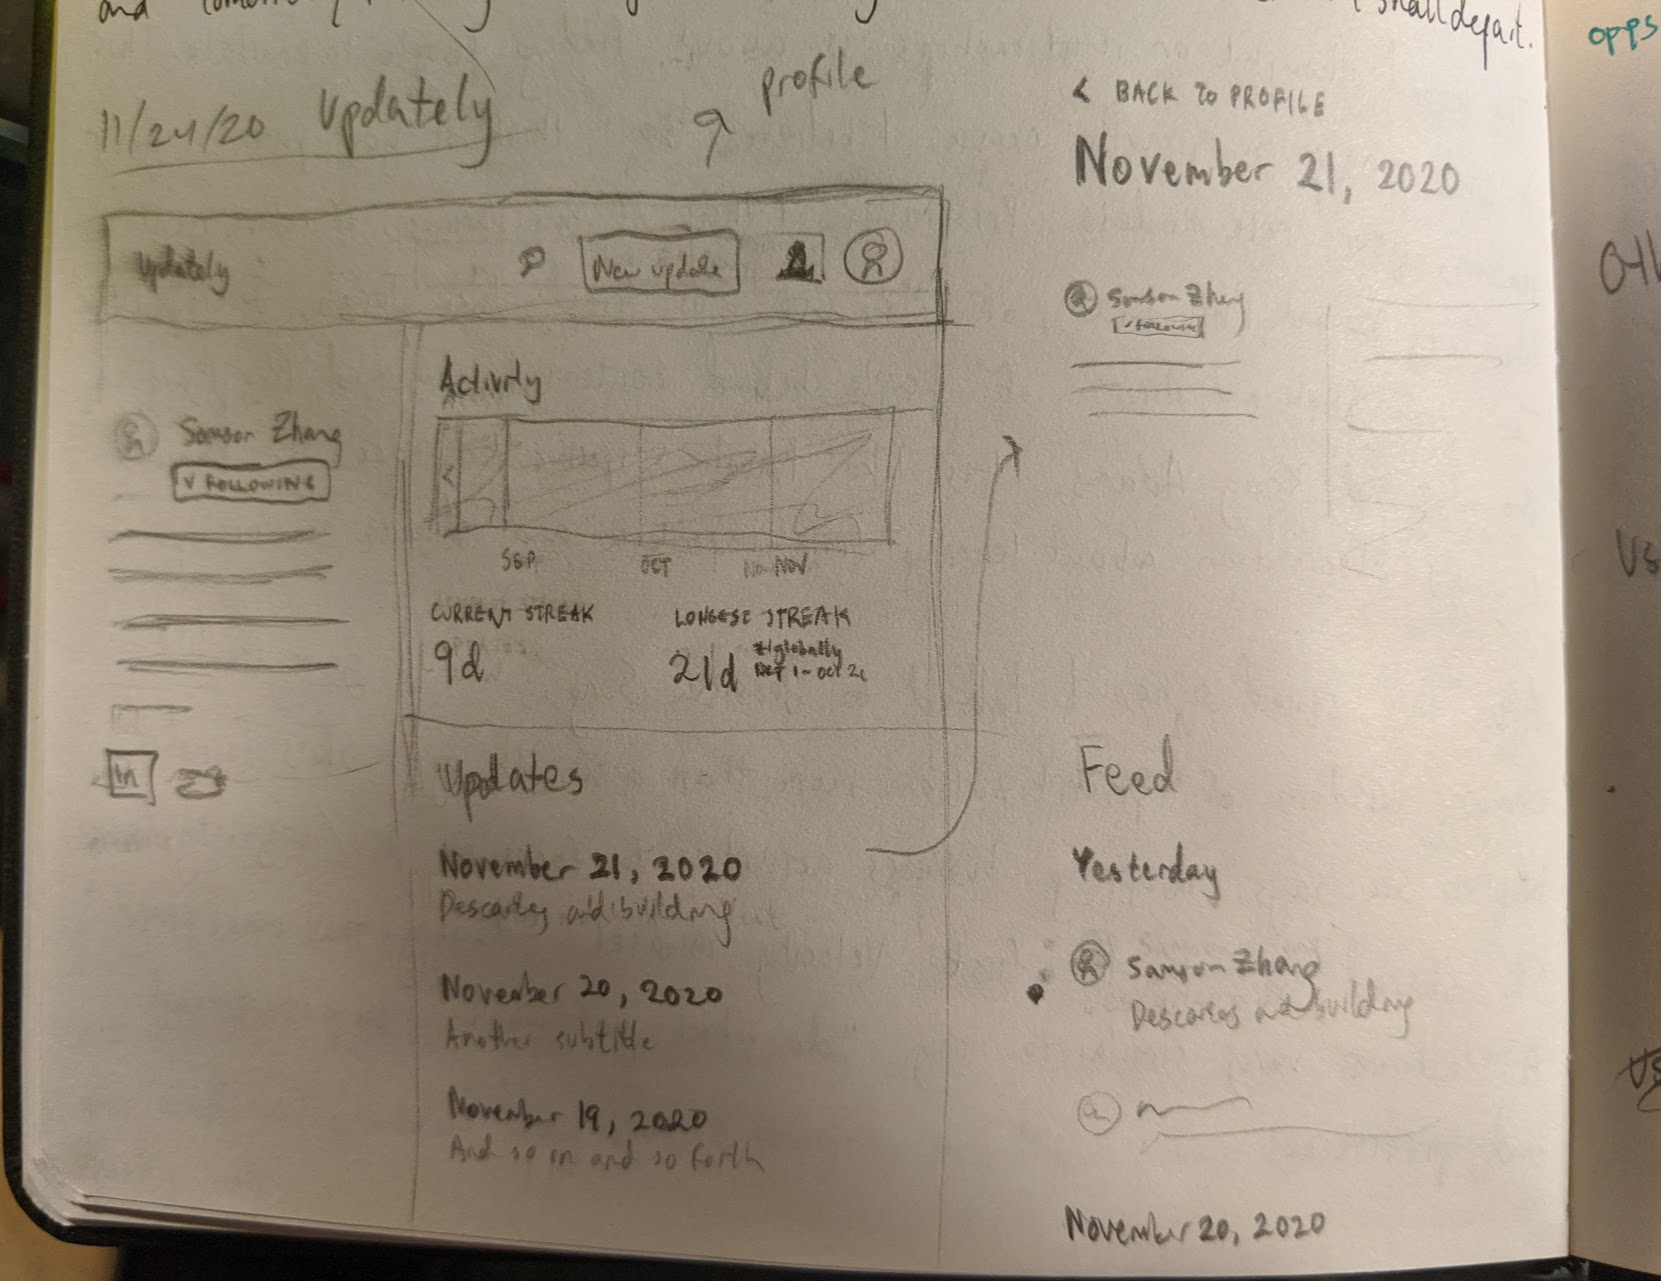 and
shall depart.
opps
11/24/20 Updately
profile
Updately
New update
Activity
<
Samson Zhang
✓ FOLLOWING
SEP OCT NOV
CURRENT STREAK LONGEST STREAK
9d 21d
globally
1 - Oct
in
Updates
November 21, 2020
Descartes and building
November 20, 2020
Another subtitle
November 19, 2020
And so on and so forth
< BACK TO PROFILE
November 21, 2020
Samson Zhang
✓ FOLLOWING
Feed
Yesterday
Samson Zhang
Descartes and building
November 20, 2020